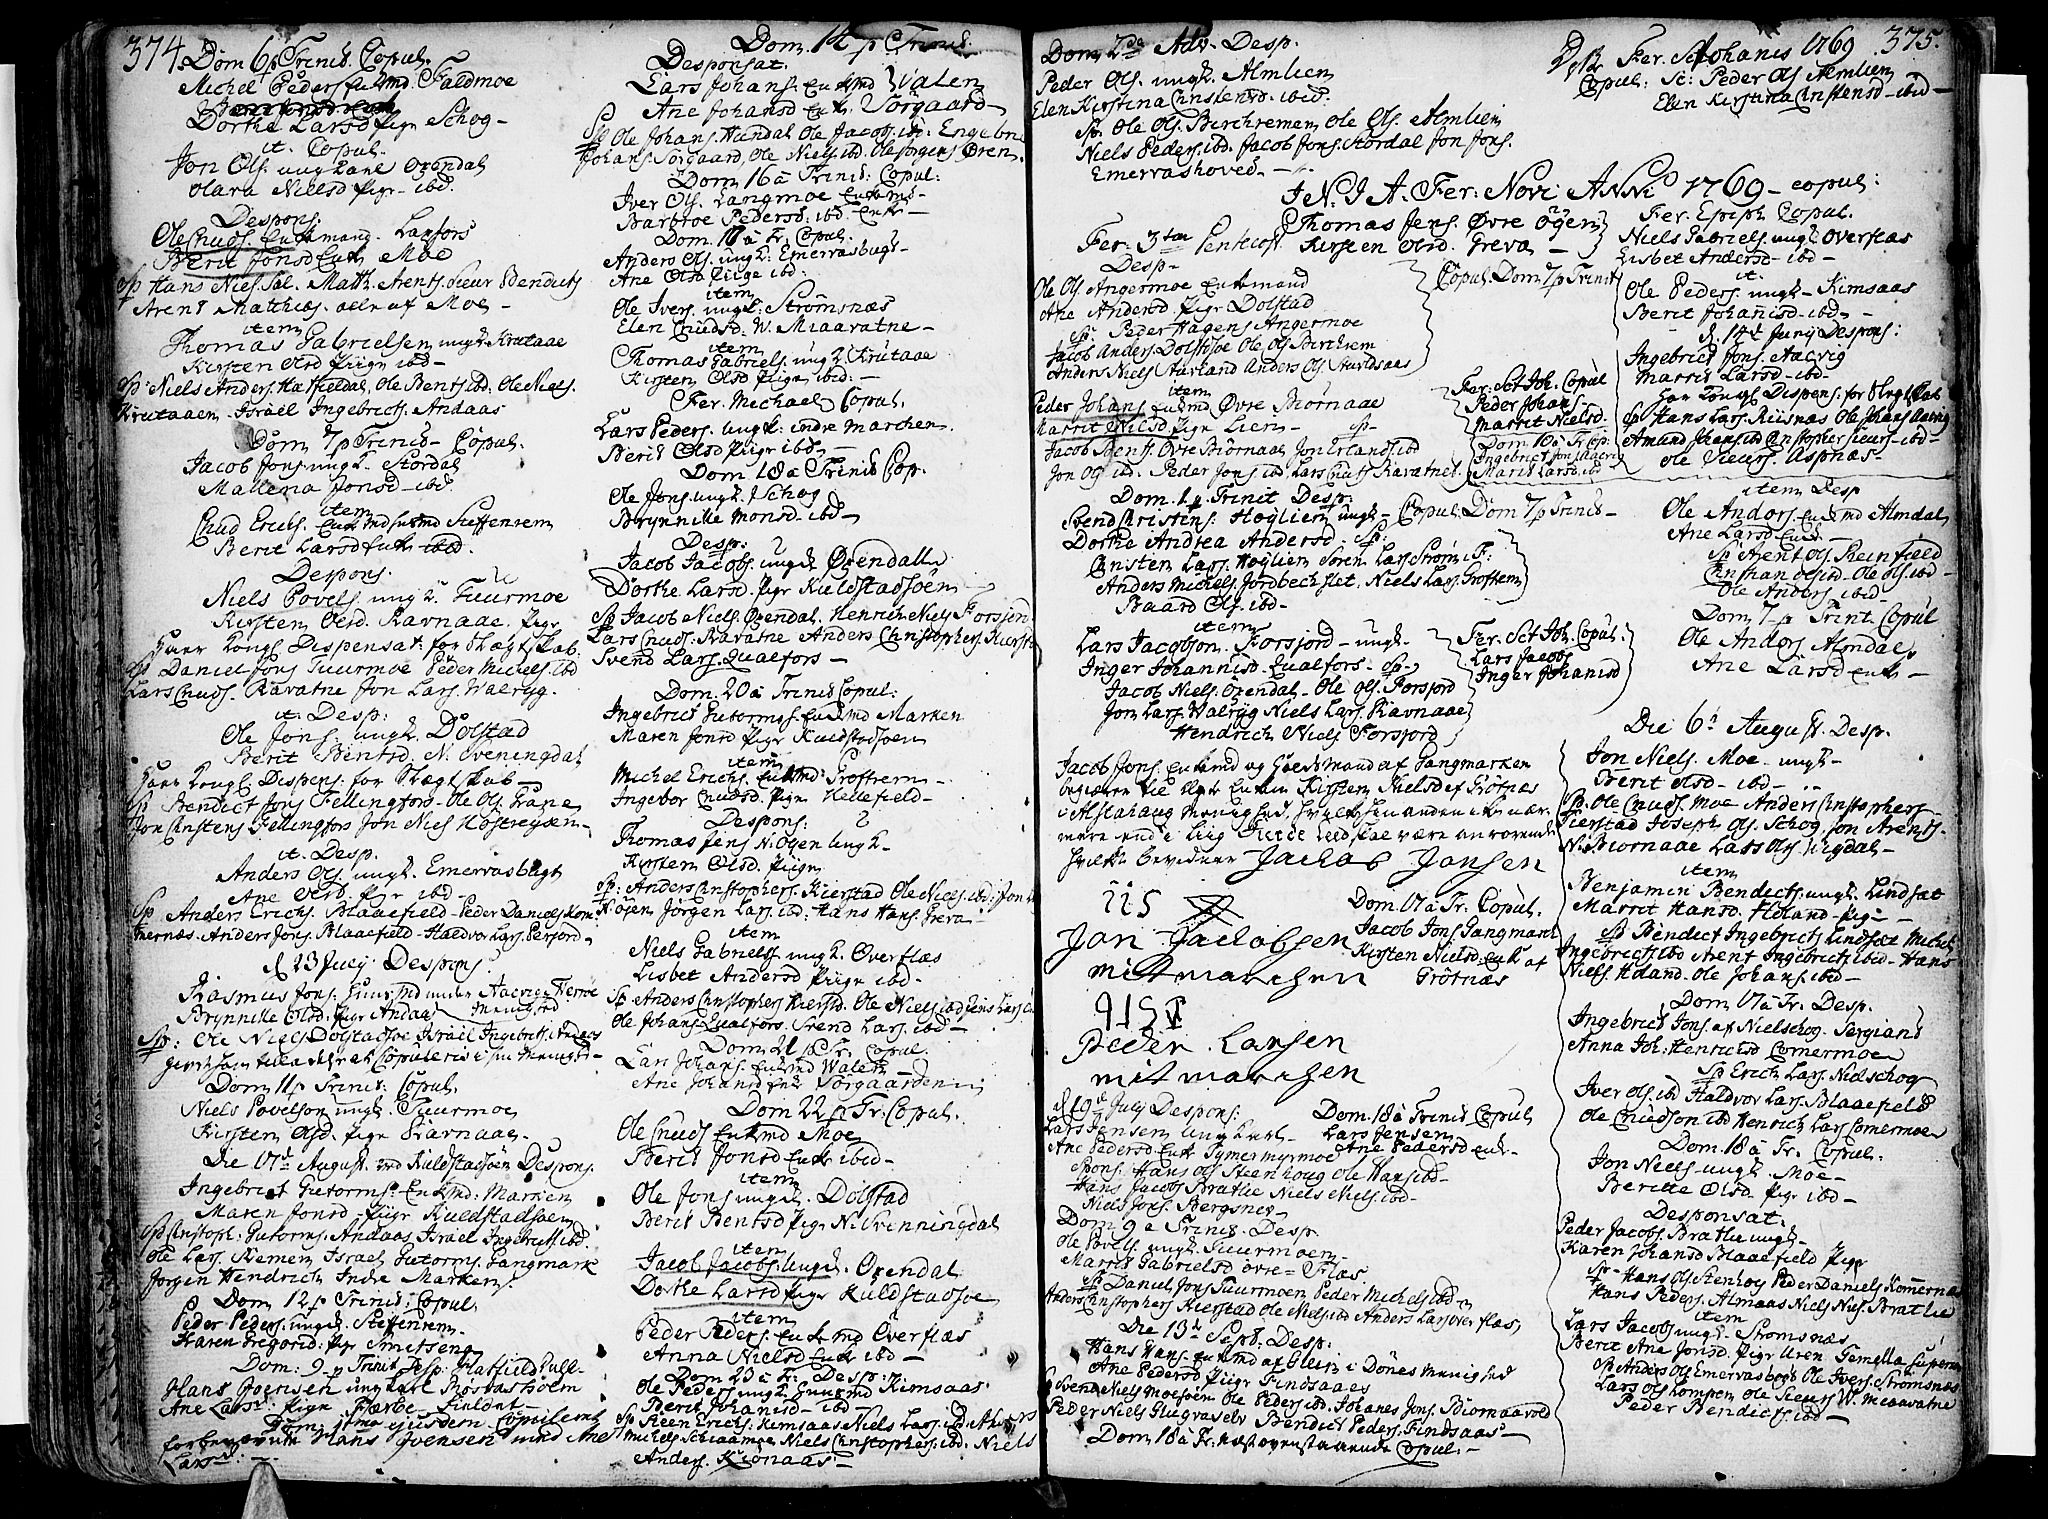 374.
Dom 6 p Trinit. Copul.
Michel Peders Enkemd Faldmoe
Dorthe Larsd Pigr Schog-
it. Copul.
Jon Ols. ungkarl Ørendal
Olava Nielsd Pigr - ibd.
Despons.
Ole Cnuds. Enkemand. Laxfors
Berit Jonsd Enke Moe
Sp Hans Niels. Matth. Arents. Siur Bendicts
Arent Matthies. alle af Moe -
item
Thomas Gabrielsen ungk. Krutaae
Kirsten Olsd Piigr ibd-
Sp: Niels Anders. Hatfieldal, Ole Bents. ibd. Ole Niels.
Krutaaen. Israel Ingebricts. Andaas
Dom. 7 p Trinit- Copul.
Jacob Jons. ungk. Stordal
Mallena Jonsd - ibd.
item
Cnud Erichs. Steffenrem
Berit Larsd Enke ibd.
Despons.
Niels Povels. ungk. Tuurmoe
Kirsten Olsd. Ravnaae. Pigr
Haver Kongl Dispensat. for Slægtskab.
Sp Daniel Jons. Tuurmoe Peder Michels. ibd
Lars Cnuds. Ravatne Jon Lars. Walryg.
it. Desp:
Ole Jons. ungk. Dolstad
Berit Bentsd N. Sveningdal
Haver Kongl Dispens. for Slægtskab-
Sp Bendict Jons Fellingfors - Ole Ols. Trane
Jon Christens. Fellingfors Jon Niels.
it. Desp.
Anders Ols. ungk. Emerrasbugt
Ane Olsd Pigr ibd-
Sp Anders Erichs. Blaaefield - Peder Daniels. Kom-
mernæs. Anders Jons. Blaaefield - Haldvor Lars. Forsjord-
d 23 July Despons.
Rasmus Jons. under Herøe
Brynnille Olsd. Pigr Andaas Menighed
Sp: Ole Niels. Dolstadsoe Israel Ingebricts. Andaas
Dom 11 p Trinit. Copul.
Niels Povelson ungk. Tuurmoe
Kirsten Olsd. Pigr Ravnaae.
Die 17de August. ved Kuldstadsoen Despons.
Ingebrict Gutorms. Enkemd. Marken
Maren Jonsd - Piigr Kuldstadsoen
Sp Christoph: Gutorms. Andaas Israel Ingebricts ibd.
Ole Lars. Remen Israel Gutorms. Langmark
Jørgen Hendrich Indre Marken.
Dom 12 p Trinit: Copul.
Peder Peders ungk. Steffenrem-
Karen Gregorsd. Pigr Smitseng
Dom: 9 p Trinit Desp: Hatfield
Hans Joensen ung karl
Ane Larsd. Pigr
ejusdem Copul.
Hans Joensen und Ane
Larsd-
Dom. 14 p Trinit.
Desponsat.
Lars Johans. Enkemd Valen
Ane Johansd Enke. Sørgaard-
Sp Ole Johans. Mandal. Ole Jacobs. ibd: Engebr.
Johans. Sørgaard, Ole Niels. ibd. Ole Jørgens Øren
Dom 16 a Trinit: Copul:
Iver Ols. Langmoe Enkemd-
Barbroe Pedersd: ibd. Enke-
Dom. 18 a Tr. Copul.
Anders Ols. ungk: Emerrasbugt-
Ane Olsd Piige ibd:
item
Ole Ivers. ungk: Strømsnæs
Elen Cnudsd. W. Miaavatne-
item
Thomas Gabriels. ungk. Krutaae
Kirsten Olsd Piige ibid:-
Fer. Michael Copul.
Lars Peders. ungk: indre Marchen.
Berit Olsd Piigr ibd-
Dom 18 a Trinit Cop.
Ole Jons. ungk. Schog
Brynnille Monsd. ibd-
Desp:
Jacob Jacobs. ungk Ørendall
Dorthe Larsd. Pigr Kuldstadsoen
Sp Jacob Niels. Ørendal. Henrich Niels. Forsjord
Lars Cnuds. Ravatne Anders Christophers. Kierst
Svend Lars. Qualfors-
Dom. 20 a Trinit Copul:
Ingebrict Gutorms. Enkemd Marken
Maren Jonsd Pigr Kuldstadsoen
item
Michel Erichs. Enkemd: Groftrem-
Ingebor Cnudsd. Pigr Hellefield-
Despons:
Thomas Jens. N. Øgen Ungk-
Kirsten Olsd. Piigr
Sp: Anders Christophers. Kierstad Ole Niels. ibd: Jon
N. Øgen Jørgen Lars. ibd: Hans Hans. Greva-
item
Niels Gabriels. ungk. Overflæs
Lisbet Andersd Piigr ibd-
Sp Anders Christophers. Kierstd. Ole Niels. ibd Jens Lars.
Ole Johans. Qualfors. Svend Lars. ibd-
Dom. 21 p Tr. Copul.
Lars Johans. Enkemd Walen
Ane Johansd Enke Sørgaarden
Dom 22 p Tr. Copul.
Ole Cnuds Enkemd Moe
Berit Jonsd Enke ibid-
item
Ole Jons ungk. Dolstad
Berit Bentsd Pigr N. Svenningdal
item
Jacob Jacobs. Ungk. Ørendal
Dorthe Larsd Pigr Kuldstadsoe
item
Peder Peders. Enkemd Overflæs
Anna Nielsd Enke ibd-
Dom 23 a Tr. Desp:
Ole Peders. ungk. Kimsaas.
Berit Johanisd - ibd-
Sp Steen Erichs. Kimsaas Niels Lars. ibd.
Michels. Niels Christophers. ibd. Niels
Anders. Kionaas-
Dom 2de Adv. Desp.
Peder Ols. ungk. Almlien
Elen Kirstina Christensd. ibid.
Sp. Ole Ols. Berchremen Ole Ols. Almlien
Niels Peders. ibd. Jacob Jons. Stordal Jon Jons.
Emerrashoved.-
Fer. Sct Johanis 1769. 375.
Copul: Sc: Peder Ols Almlien
Elen Kirstina Christensd-ibid-
J. N. J. A. Fer: Novi Anni 1769 - copul:
Thomas Jens. Øvre Øgen
Kirsten Olsd. Greva-
Fer: 3tia Pentecost
Desp-
Ole Ols Angermoe Enkemand
Ane Andersd Pigr Dolstad
Sp: Peder Hagens. Angermoe
Jacob Anders. Dolstsoe Ole Ols Berchrem
Anders Niels. Anders Ols.
Copul. Dom. 7 p Trinit
item
Peder Johans. Enkemd Øvre Biornaae
Marrit Nielsd. Pigr Lien- Sp-
Jacob Bents. Øvre Biornaae Jon Erlands. ibd
Jon Ols. ibd. Peder Jons. ibd. Lars Cnuds. Ravatne
Fer. Sct Joh. Copul
Peder Johans.
Marrit Nielsd.
Dom 10 a Tr. Cop:
Ingebrict Jons. Aacvig
Marit Larsd. ibd
Dom. 1 p. Trinit Desp:
Svend Christens. Høglien ungk- Copul. Dom 7 p Trinit-
Dorthe Andrea Andersd: Sp:
Christen Lars. Høglien Søren Lars. Strøm
Anders Michels. Jordbechslet Niels Lars. Groftrem
Baard Ols. ibd-
item
Lars Jacobson Forsjord - ungk-
Inger Johannisd. Qualfors. Sp-
Jacob Niels. Ørendal - Ole Ols. Forsjord
Jon Lars. Walryg Niels Lars. Ravnaae
Hendrich Niels. Forsjord
Fer. Sct Joh. Copul:
Lars Jacobs.
Inger Johanisd
Jacob Jons. Enkemd og Gaardmand af Langmarken
begierer Enken Kirsten Nielsd af Grøtnæs
i Alstahaug Menighed, hvilke hinanden ikke nær-
mere end i Tredie Leed skal være anrørende
hvilke bevidner Jachob Jonsen
IIS
Jon Jachobsen
mitmarchen
Dom. 17 a Tr: Copul.
Jacob Jons Langmark
Kirsten Nielsd. Enke af
Grøtnæs
Peder Larsen
mitmarchen
d 19de July Despons:
Lars Jensen Ung Karl-
Ane Pedersd Enke Tymermyrmoe
Dom. 18 a Trinit. Copul
Lars Jensen
Ane Pedersd Enke-
Spons. Hans Ols. Steenhoug Ole Hans. ibd-
Hans Jacobs. Brathe Niels Niels. ibd-
Niels Jons. Bergsnev-
Dom 9 a Trinit. Desp.
Ole Povels. ungk. Tuurmoen-
Marrit Gabrielsd øvre=Flæs.
Sp Daniel Jons. Tuurmoen Peder Michels. ibd
Anders Christophers. Kierstad Ole Niels. ibd Anders Lars. overflæs
Die 13d Sept: Desp:
Hans Hans. Enkemd af Glein i Dønes menighed
Ane Pedersd Piigr Findsaaes
Svend Niels. Moesoen Ole Peders. ibd. Johanes Jons. Biornaavold
Peder Niels. Bendict Peders. Findsaas-
Dom 18 a Tr: næst ovenstaaende Copul:-
Fer. Epiph. Copul.
Niels Gabriels. ungk Overflæs
Lisbet Andersd - ibd-
it.
Ole Peders. ungk- Kimsaas
Berit Johanisd. ibd-
d. 14d Junij Despons:
Ingebrict Jons. Aacvig
Marrit Larsd-ibd-
Har Kongl Dispens. for Slægtskab
Sp Hans Lars. Riisnæs Ole Johans. Aacvig
Amund Johans. ibd Christopher Siurs-ibd-
Ole Siurs. Aspnæs-
item Desp
Ole Anders. Enkemd Almdal
Ane Larsd Enke-
Sp Arent Ols. Reinfield
Christian Ols. ibd. Ole Ols. ibd-
Ole Anders. ibd-
Dom 7 p Trinit. Copul
Ole Anders. Almdal,
Ane Larsd Enke-
Die 6d August. Desp.
Jon Niels. Moe - ungk-
Berit Olsd - ibd-
Sp: Ole Cnuds. Moe Anders Christophers.
Kierstad Joseph Ols. Schog Jon Arents.
N. Biornaae Lars Ols
item
Benjamin Bendicts. ungk. Lindsæt
Marrit Hansd. Holand - Pig-
Sp Bendict Ingebricts. Lindsæt Michel
Ingebricts. ibd Arent Ingebricts. ibid- Hans
Niels. Holand. Ole Johans. ibd-
Dom 17 a Tr. Desp.
Ingebrict Jons. af Nielschog Sergiant
Anna Joh: Henrichsd Comermoe
Sp Erich Lars. Nielschog
Iver Ols. ibd Haldvor Lars. Blaaefield
Ole Cnudson ibd Henrich Lars. Comermoe
Dom. 18 a Tr. Copul.
Jon Niels. ungk. Moe-
Beritte Olsd. Pigr ibd-
Desponsat.
Peder Jacobs. Brathe ungk-
Karen Johansd Blaaefield Pigr
Sp- Hans Ols. Stenhog Peder Daniels. Komernæs
Hans Peders. Almaas Niels Niels. Brathe
item
Lars Jacobs. ungk- Strømsnæs
Berit Ane Jonsd. Pigr Uren
Sp Anders Ols. Emerrasbogt Ole Ivers. Strømsnæs
Lars Ols. Kompen Ole Siurs. W. Miaavatne
Peder Bendicts. ibd-